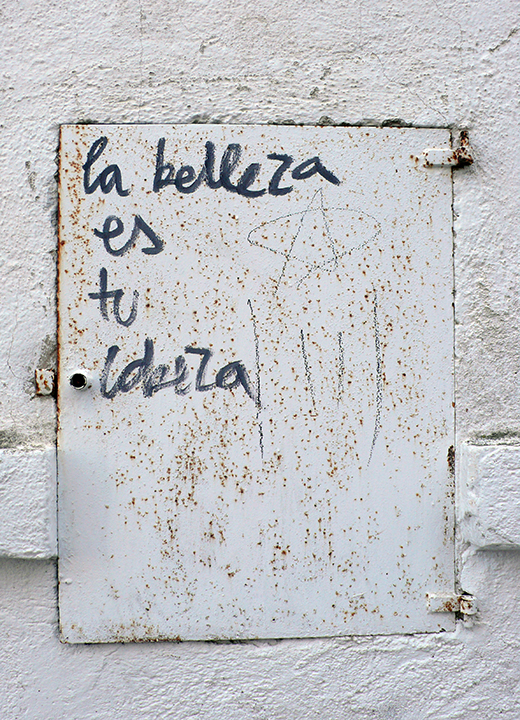 la belleza
es
tu